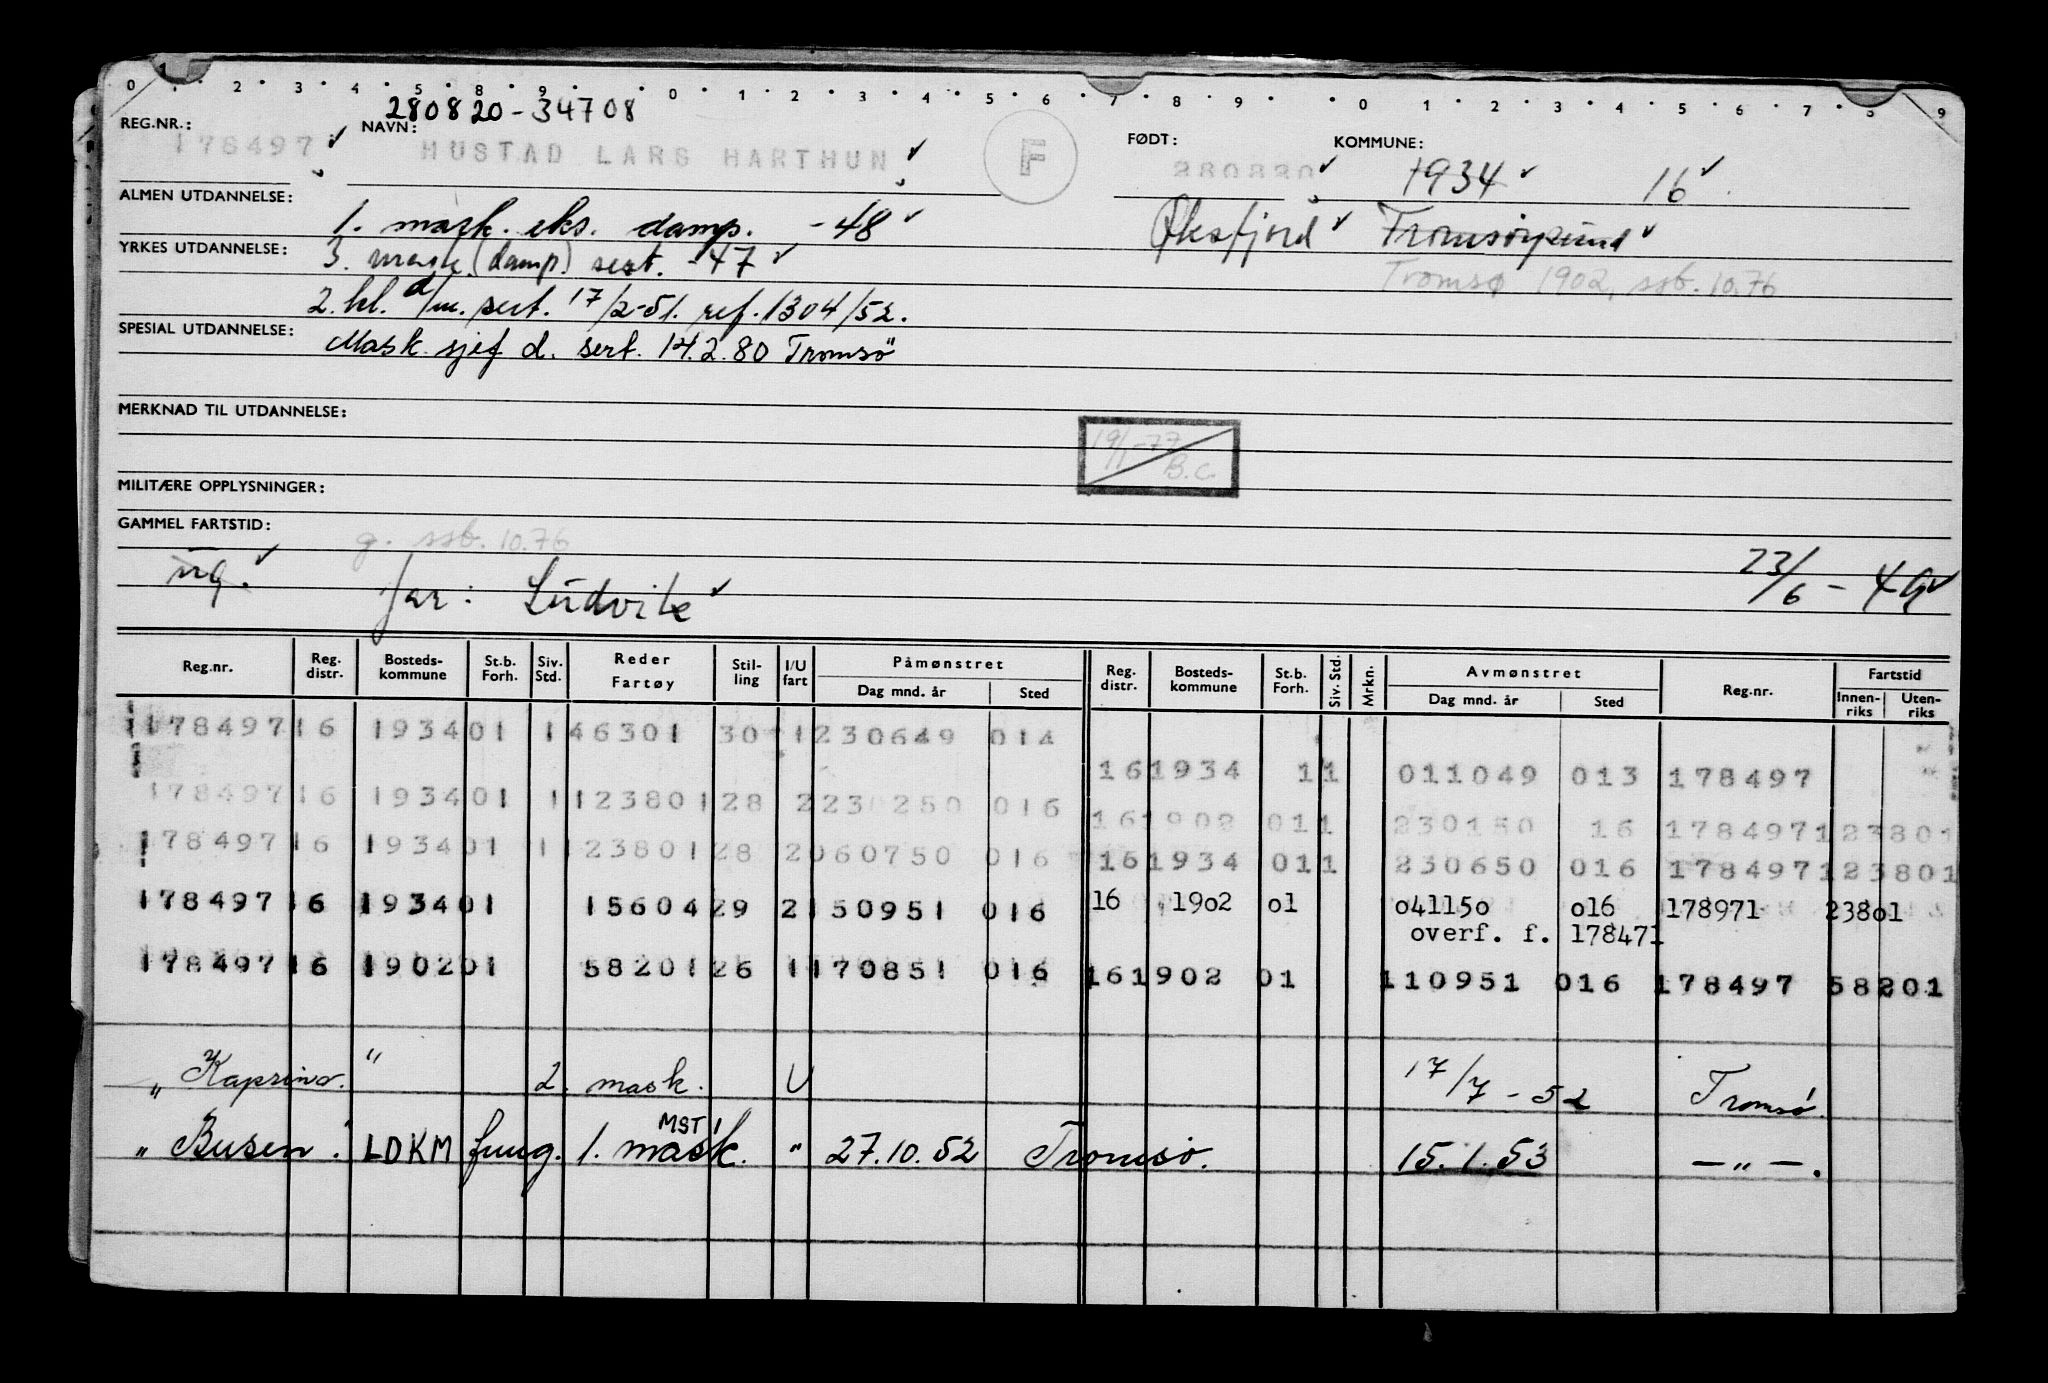 0 1 2 3 4 5 8 9 0 1 2 3 4 5 6 7 8 9 0 1 2 3 4 5 6 7 8 9
280820-34708
REG.NR.: NAVN: FØDT: KOMMUNE:
178497 HUSTAD LARS HARTHUN F 280820 1934 16
ALMEN UTDANNELSE: 1. mask. eks. damp. -48 Øksfjord Tromsøysund
YRKES UTDANNELSE: 3. mask. (damp.) sert. -47
Tromsø 1902, ssb. 10.76
2. kl. d/m. sert. 17/2-51. ref. 1304/52.
SPESIAL UTDANNELSE: Mask. sjef d. sert. 14.2.80 Tromsø
MERKNAD TIL UTDANNELSE:
19/1-77 B.C.
MILITÆRE OPPLYSNINGER:
GAMMEL FARTSTID:
g. ssb. 10.76
ug. far: Ludvik 23/6-49
Reg.nr. Reg. distr. Bosteds- kommune St.b. Forh. Siv. Std. Reder Fartøy Stil- ling I/U fart Påmønstret Dag mnd. år Sted Reg. distr. Bosteds- kommune St.b. Forh. Siv. Std. Mrkn. Avmønstret Dag mnd. år Sted Reg.nr. Fartstid Innen- riks Uten- riks
178497 16 1934 01 1 46301 30 1 230649 014
16 1934 1 1 011049 013 178497
178497 16 1934 01 1 123801 28 2 230250 016
16 1902 01 1 230150 16 178497 123801
178497 16 1934 01 1 123801 28 2 060750 016
16 1934 01 1 230650 016 178497 123801
178497 16 1934 01 15604 29 2 150951 016 16 19o2 o1 o4115o o16 178971 238o1
overf. f. 178471
178497 16 1902 01 58201 26 1 170851 016
16 1902 01 110951 016 178497 58201
„ Kaprino. " 2. mask. U 17/7-52 Tromsø
MST
„ Busen. LDKM fung. 1. mask. " 27.10.52 Tromsø. 15.1.53 —„—.